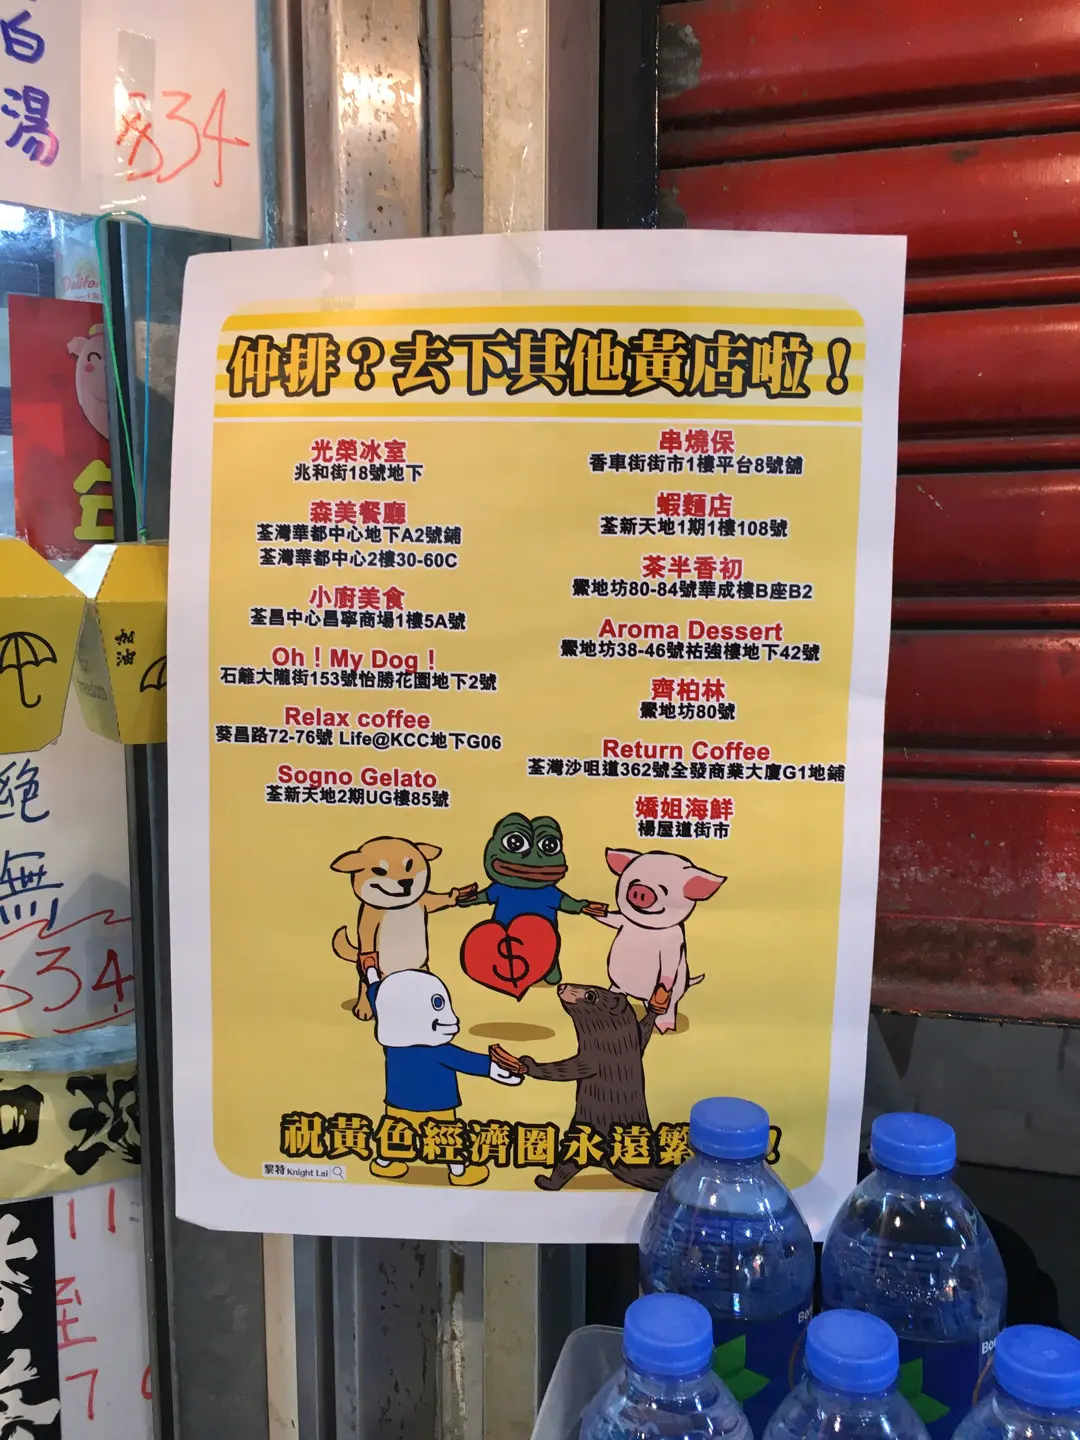 白
湯
$34
仲排？去下其他黃店啦！
光榮冰室
兆和街18號地下
森美餐廳
荃灣華都中心地下A2號鋪
荃灣華都中心2樓30-60C
小廚美食
荃昌中心昌寧商場1樓5A號
Oh ! My Dog !
石籬大隴街153號怡勝花園地下2號
Relax coffee
葵昌路72-76號 Life@KCC地下G06
Sogno Gelato
荃新天地2期UG樓85號
串燒保
香車街街市1樓平台8號舖
蝦麵店
荃新天地1期1樓108號
茶半香初
鱟地坊80-84號華成樓B座B2
Aroma Dessert
鱟地坊38-46號祐強樓地下42號
齊柏林
鱟地坊80號
Return Coffee
荃灣沙咀道362號全發商業大廈G1地鋪
嬌姐海鮮
楊屋道街市
$
祝黃色經濟圈永遠繁
黎特 Knight Lai
絕
無
$34
11:
至
7